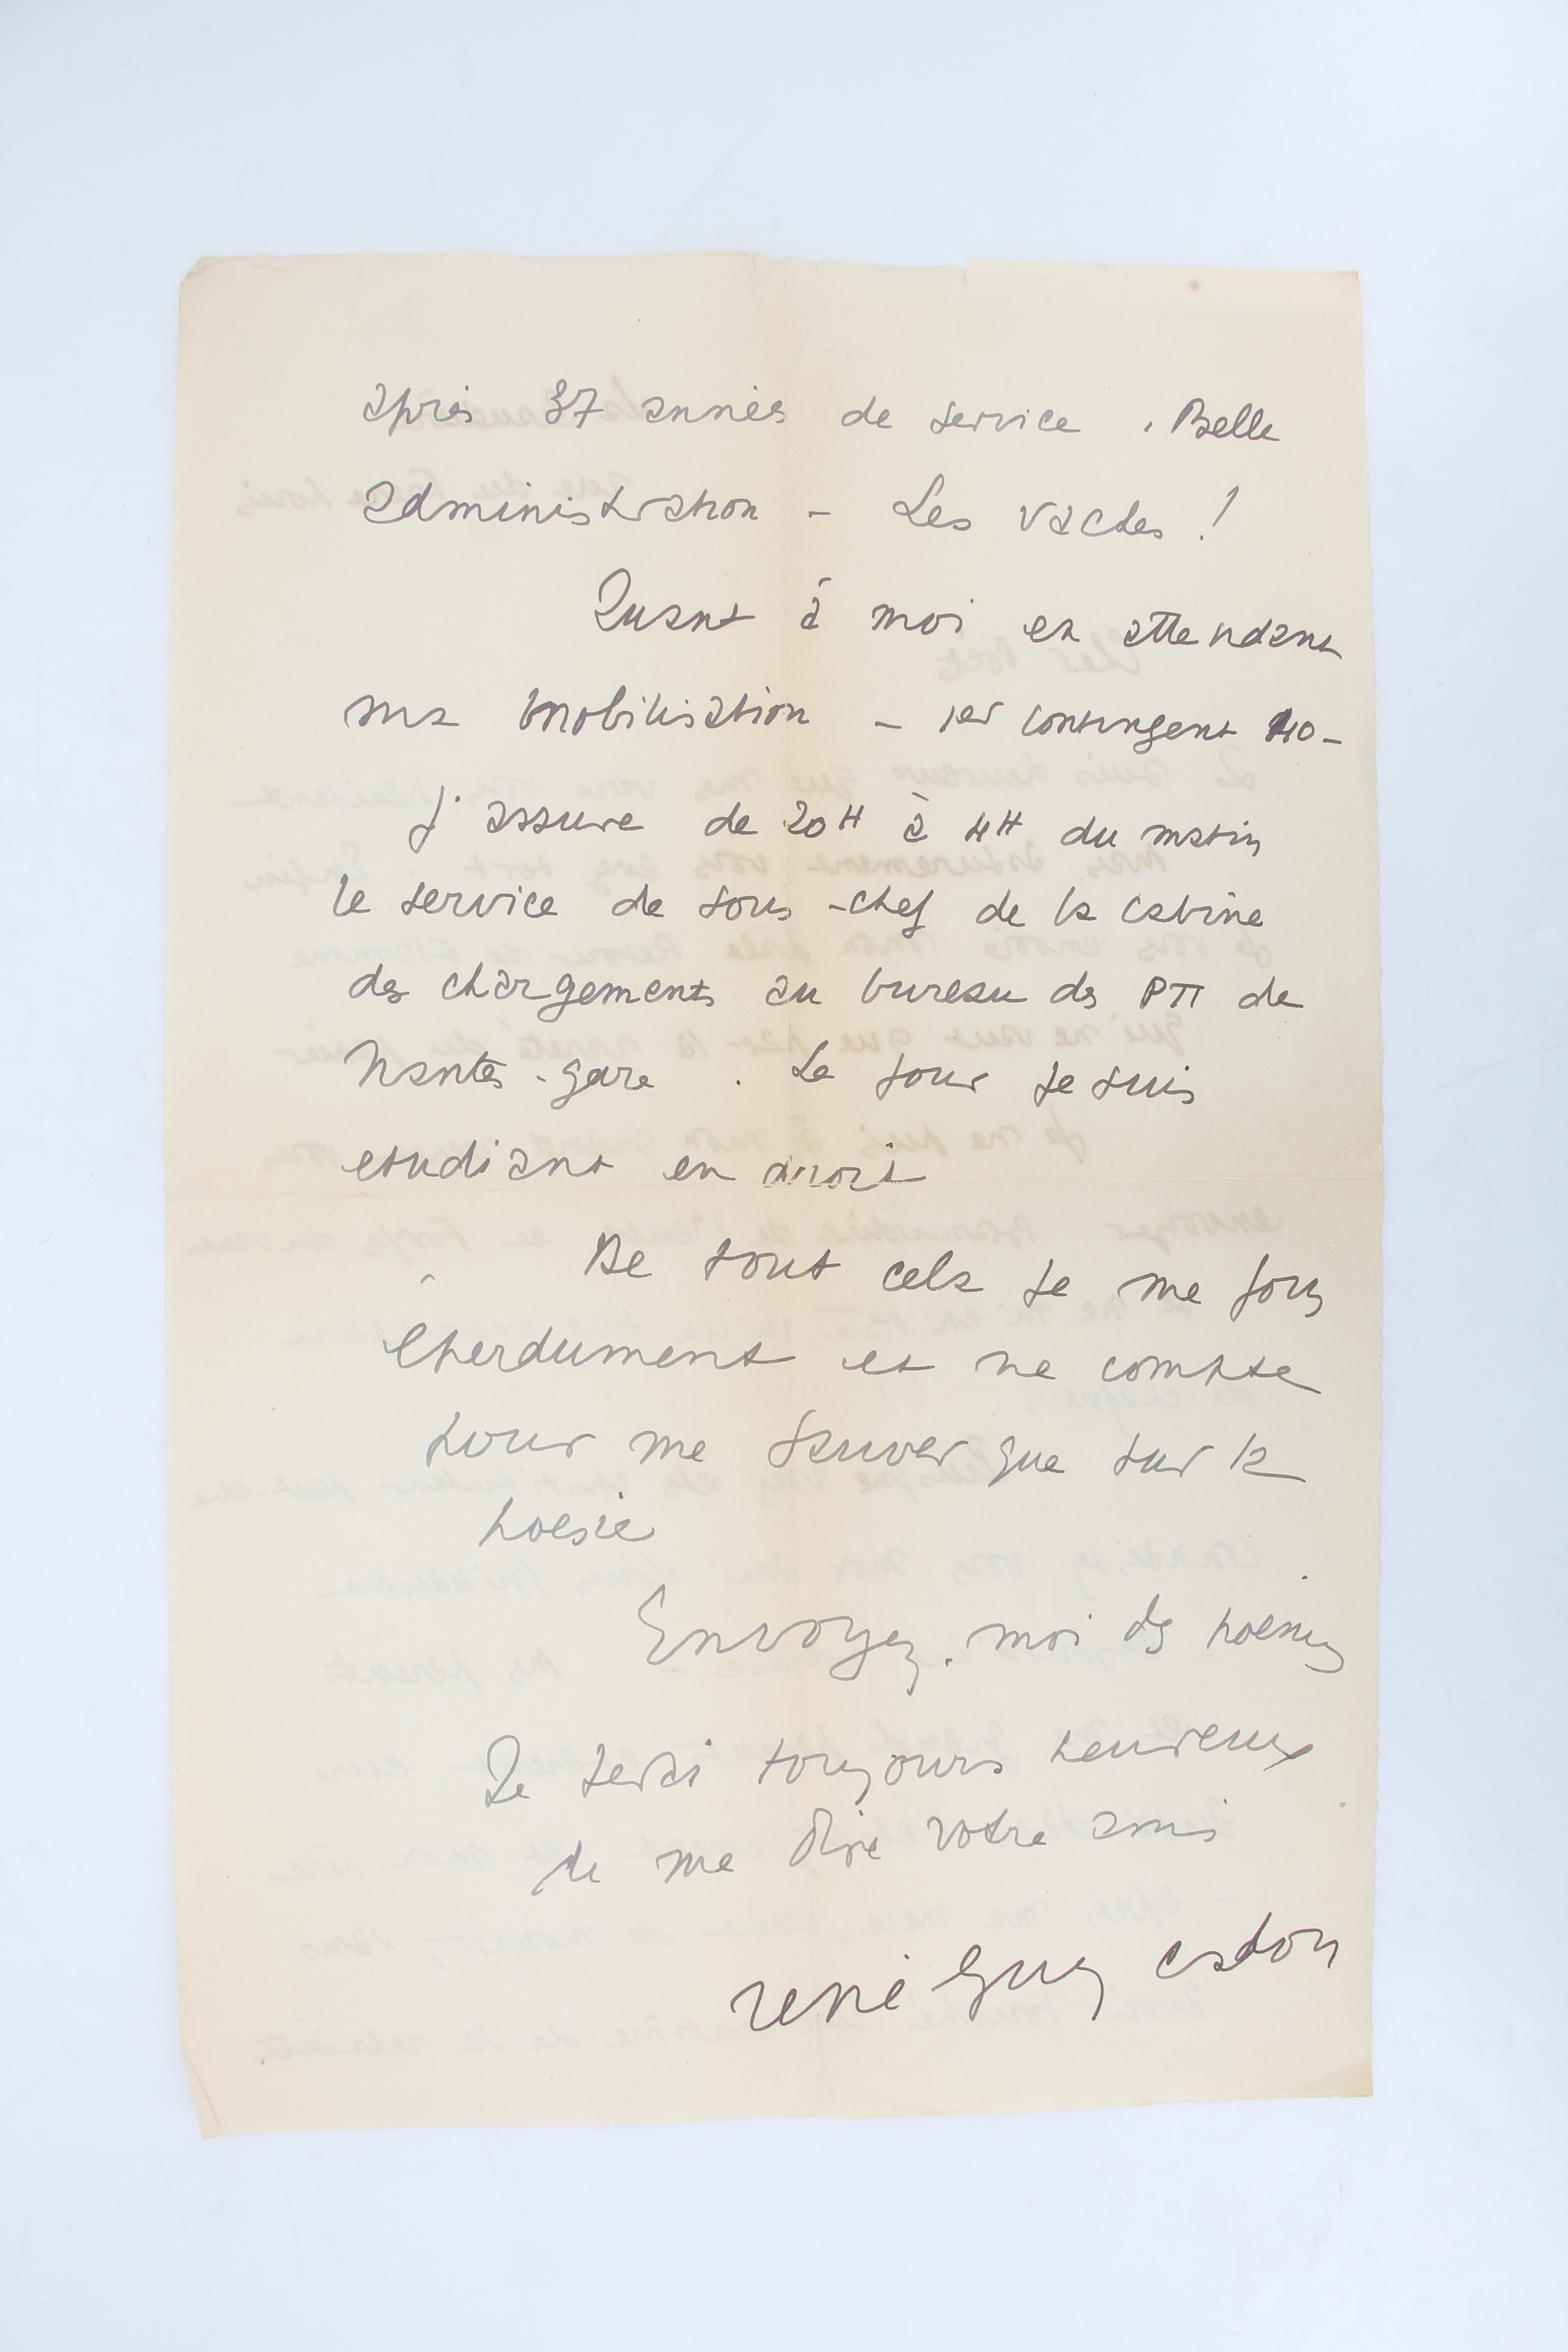 après 37 années de service . Belle
administration - Les vaches !
Quant à moi en attendant
ma mobilisation - 1er contingent 40 -
J'assure de 20H à 4H du matin
le service de sous-chef de la cabine
des chargements au bureau des PTT de
Nantes-gare . Le jour je suis
etudiant en droit
De tout cela je me fous
éperdument et ne compte
pour me sauver que sur la
poesie
Envoyez-moi des poemes
Je serai toujours heureux
de me dire votre ami
rené guy cadou